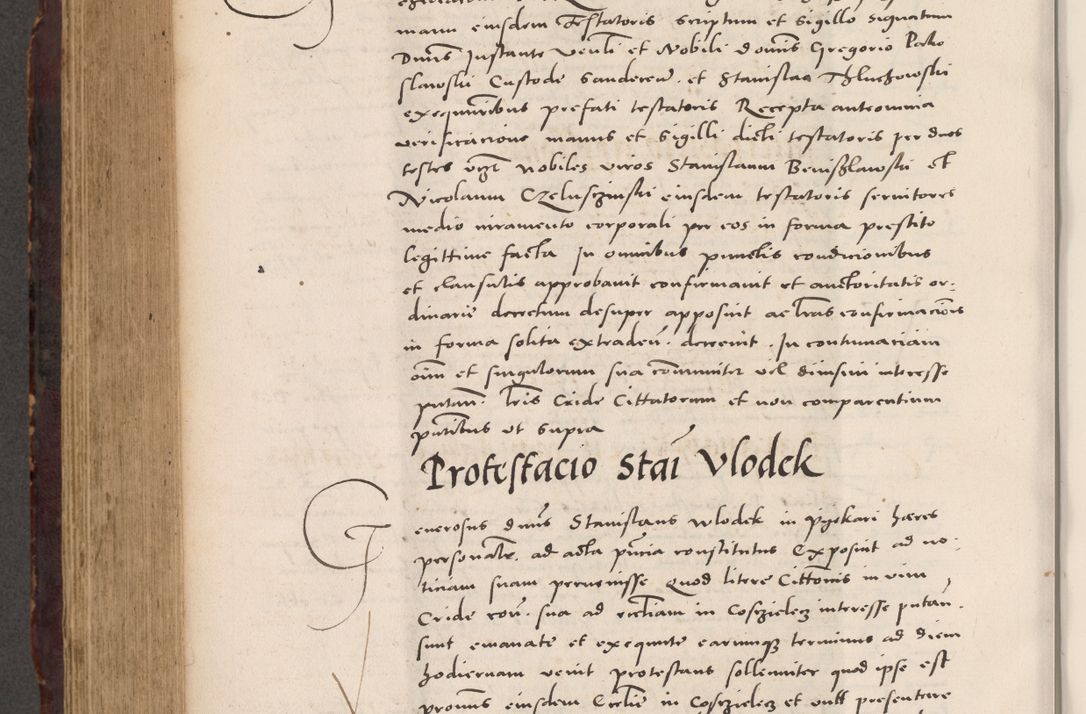 manu eiusdem Testatoris scriptum et sigillo signatum
Dnus Instante venli et Nobili domis Gregorio Pako
slawski Custode Sandecen. et Stanislao Thluchowski
exequutoribus prefati testatoris Recepta anteomnia
verificacione manus et sigilli dicti testatoris per duos
testes vz Nobiles viros Stanislaum Beniszlawski et
Nicolaum Czeluszinski eiusdem testatoris seruitores
medio iuramento corporali per eos in forma prestito
legittime facta In omnibus punctis condicionibus
et clausulis approbauit confirmauit et auctoritatis or:
dinarie decretum desuper apposuit ac lras confirmacionis
in forma solita extraden. decreuit. In contumaciam
oim et singulorum sua comuniter vel diuisim interesse
putan. lris Cride Cittatorum et non comparentium
pntibus vt supra
Protestacio Stai Vlodek
Generosus dnus Stanislaus Wlodek in heres
personalr. ad acta pntia constitutus Exposuit ad no:
ticiam suam peruenisse Quod litere Cittonis in vim
Cride con. sua ad ecctiam in Cosczielecz interesse putan.
sunt emanate et exequute earumque terminus ad diem
hodiernum venit protestans sollenniter quod ipse est
pronus eiusdem Ecclie in Cosczielecz et vult presentare